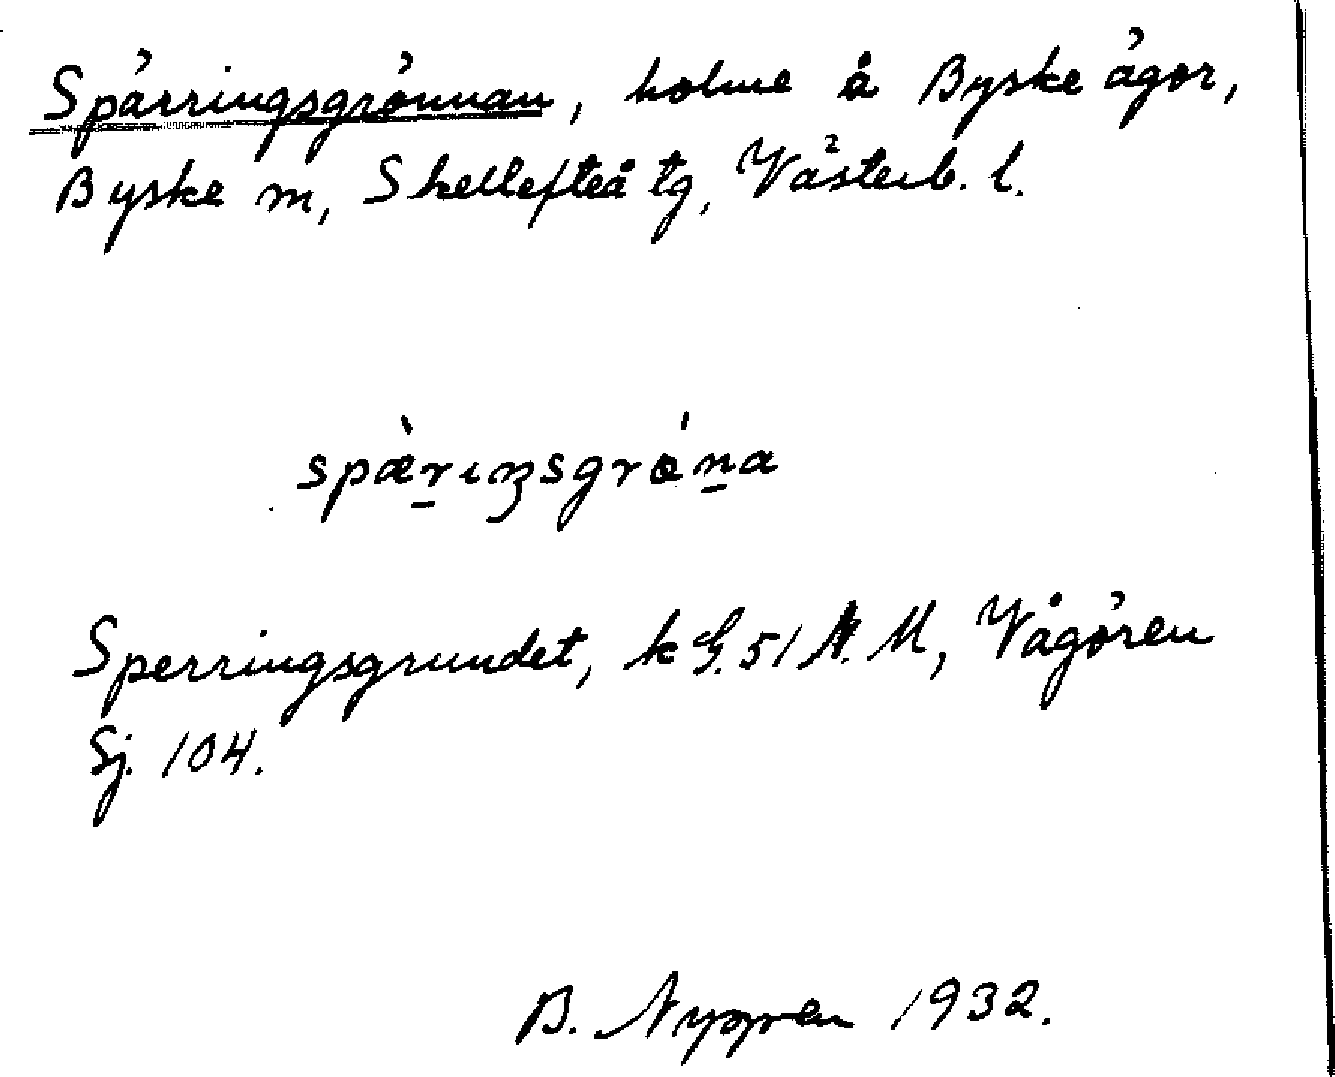 Spärringsgrönnan, holme å Byske ägor,
Byske sn, Skellefteå tg, Västerb. l.
spæ̀r̠ıŋsgrǿn̠a
Sperringsgrundet, k G. 51 N. M, Vågören
Sj. 104.
B. 1932.